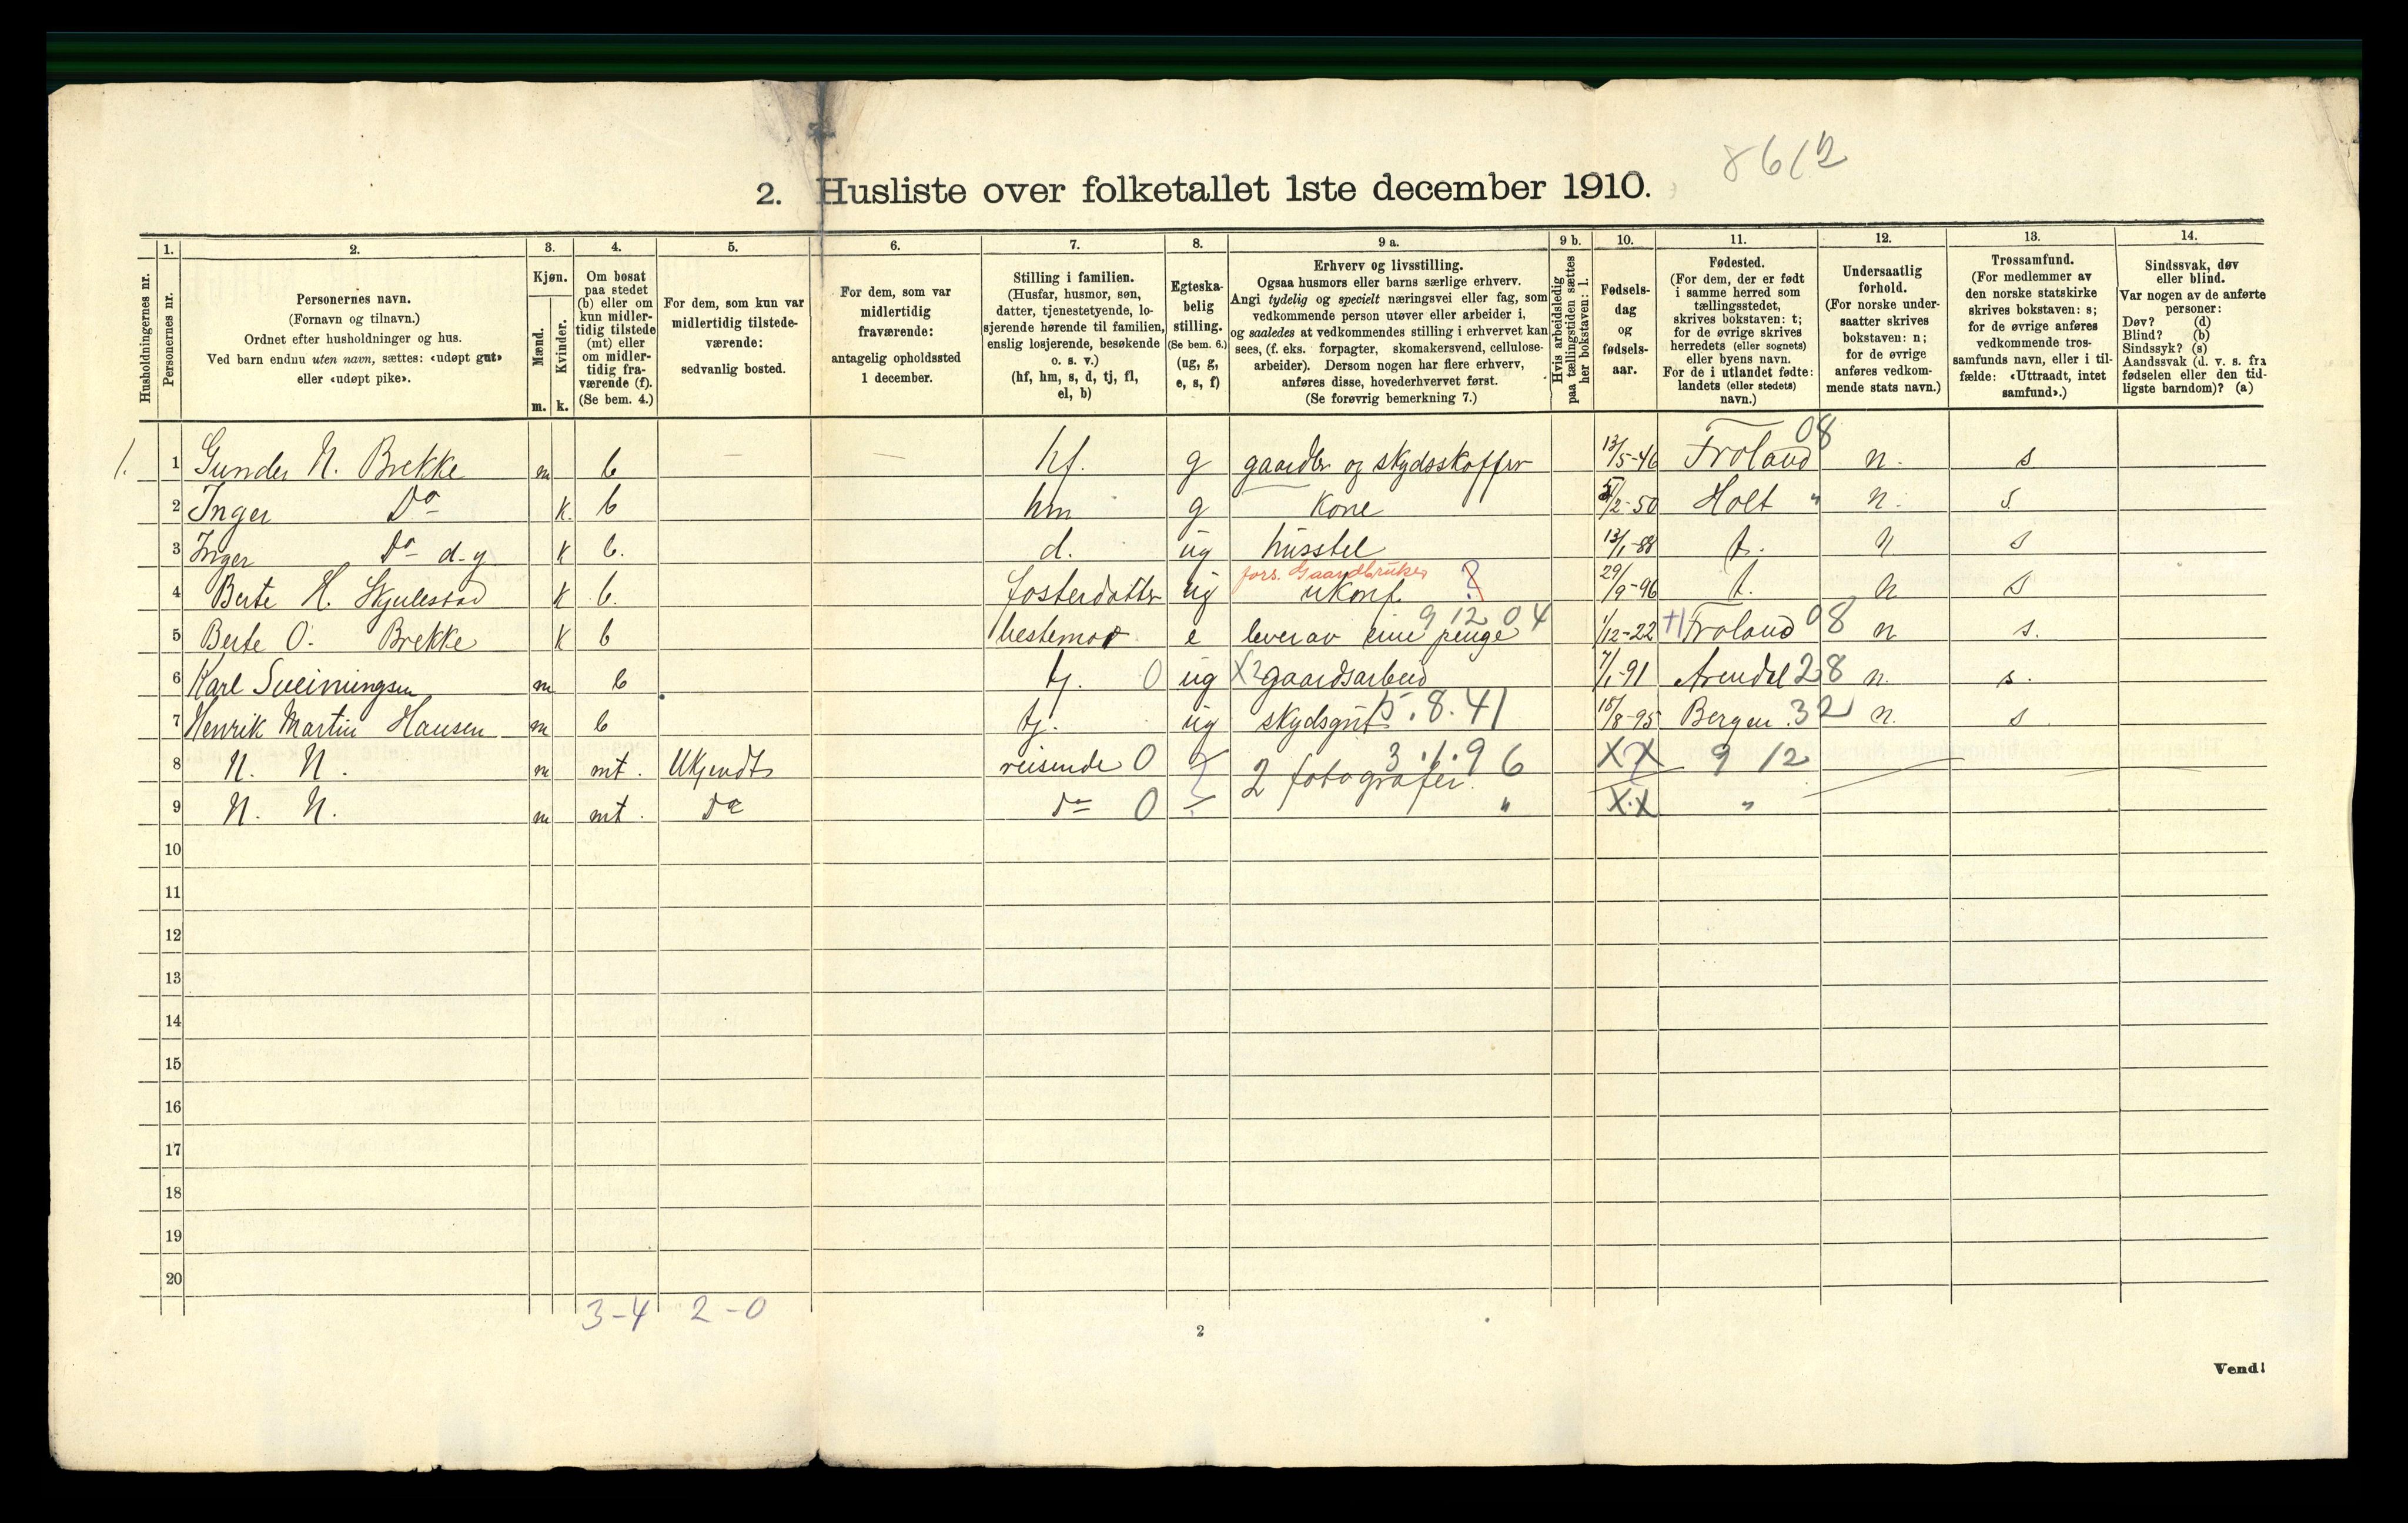 8612
2. Husliste over folketallet 1ste december 1910.
Husholdningernes nr.
1.
Personernes nr.
2.
Personernes navn.
(Fornavn og tilnavn.)
Ordnet efter husholdninger og hus.
Ved barn endnu uten navn, sættes: «udøpt gut»
eller «udøpt pike».
3.
Kjøn.
Mænd.
Kvinder.
m. k.
4.
Om bosat
paa stedet
(b) eller om
kun midler-
tidig tilstede
(mt) eller
om midler-
tidig fra-
værende (f).
(Se bem. 4.)
5.
For dem, som kun var
midlertidig tilstede-
værende:
sedvanlig bosted.
6.
For dem, som var
midlertidig
fraværende:
antagelig opholdssted
1 december.
7.
Stilling i familien.
(Husfar, husmor, søn,
datter, tjenestetyende, lo-
sjerende hørende til familien,
enslig losjerende, besøkende
o. s. v.)
(hf, hm, s, d, tj, fl,
el, b)
8.
Egteska-
belig
stilling.
(Se bem. 6.)
(ug, g,
e, s, f)
9 a.
Erhverv og livsstilling.
Ogsaa husmors eller barns særlige erhverv.
Angi tydelig og specielt næringsvei eller fag, som
vedkommende person utøver eller arbeider i,
og saaledes at vedkommendes stilling i erhvervet kan
sees, (f. eks. forpagter, skomakersvend, cellulose-
arbeider). Dersom nogen har flere erhverv,
anføres disse, hovederhvervet først.
(Se forøvrig bemerkning 7.)
9 b.
Hvis arbeidsledig
paa tællingstiden sættes
her bokstaven: l.
10.
Fødsels-
dag
og
fødsels-
aar.
11.
Fødested.
(For dem, der er født
i samme herred som
tællingsstedet,
skrives bokstaven: t;
for de øvrige skrives
herredets (eller sognets)
eller byens navn.
For de i utlandet fødte:
landets (eller stedets)
navn.)
12.
Undersaatlig
forhold.
(For norske under-
saatter skrives
bokstaven: n;
for de øvrige
anføres vedkom-
mende stats navn.)
13.
Trossamfund.
(For medlemmer av
den norske statskirke
skrives bokstaven: s;
for de øvrige anføres
vedkommende tros-
samfunds navn, eller i til-
fælde: «Uttraadt, intet
samfund».)
14.
Sindssvak, døv
eller blind.
Var nogen av de anførte
personer:
Døv? (d)
Blind? (b)
Sindssyk? (s)
Aandssvak (d. v. s. fra
fødselen eller den tid-
ligste barndom)? (a)
1. 1 Gunder N. Brekke m b — — hf. g gaardbr og skydsskaffer 13/5-46 Froland 08 n. s
2 Inger Do k. b hm g Kone 5/2-50 Holt " n. s.
3 Inger Do d.y k b. d. ug husstel 13/1-88 t. n s
fors. Gaardbruker
4 Berte H. Skjulestad k b. fosterdatter ug ukonf ? 29/9-96 t. n s
9 12 04
5 Berte O. Brekke k b bestemor e lever av sine penge 1/12-22 Froland 08 n s.
6 Karl Sveinungsen m b tj. 0 ug X2 gaardsarbeid 7/1-91 Arendal 28 n. s.
7 Henrik Martin Hansen m b tj. ug skydsgut 5.8.41 15/8-95 Bergen 32 n. s
8 N. N. m mt. Ukjendt reisende 0 ? 3.1.96 XX 9 12
2 fotografer.
9 N. N. m mt. Do do 0 " XX "
10
11
12
13
14
15
16
17
18
19
20
3-4 2-0
2
Vend!